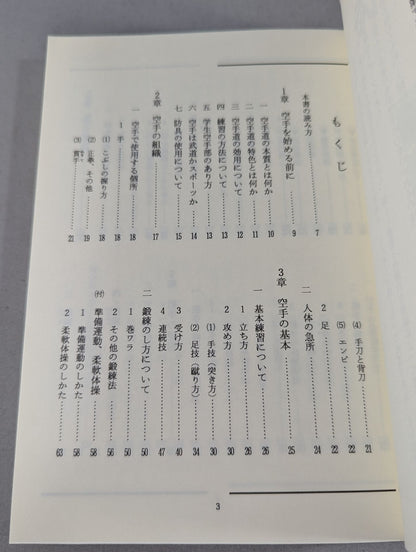 もくじ
本書の読み方……7
1章 空手を始める前に……9
一 空手道の本質とは何か……10
二 空手道の特色とは何か……11
三 空手道の効用について……12
四 練習の方法について……13
五 学生空手部のあり方……13
六 空手は武道かスポーツか……14
七 防具の使用について……15
2章 空手の組織……17
一 空手で使用する個所……18
1 手……18
(1) こぶしの握り方……18
(2) 正拳、その他……19
(3) 貫手……21
(4) 手刀と背刀……21
(5) エンピ……22
2 足……22
二 人体の急所……24
3章 空手の基本……25
一 基本練習について……26
1 立ち方……26
2 攻め方……30
(1) 手技（突き方）……30
(2) 足技（蹴り方）……34
3 受け方……40
4 連続技……47
二 鍛練のし方について……50
1 巻ワラ……50
2 その他の鍛練法……56
(付) 準備運動、柔軟体操……58
1 準備運動のしかた……58
2 柔軟体操のしかた……63
3